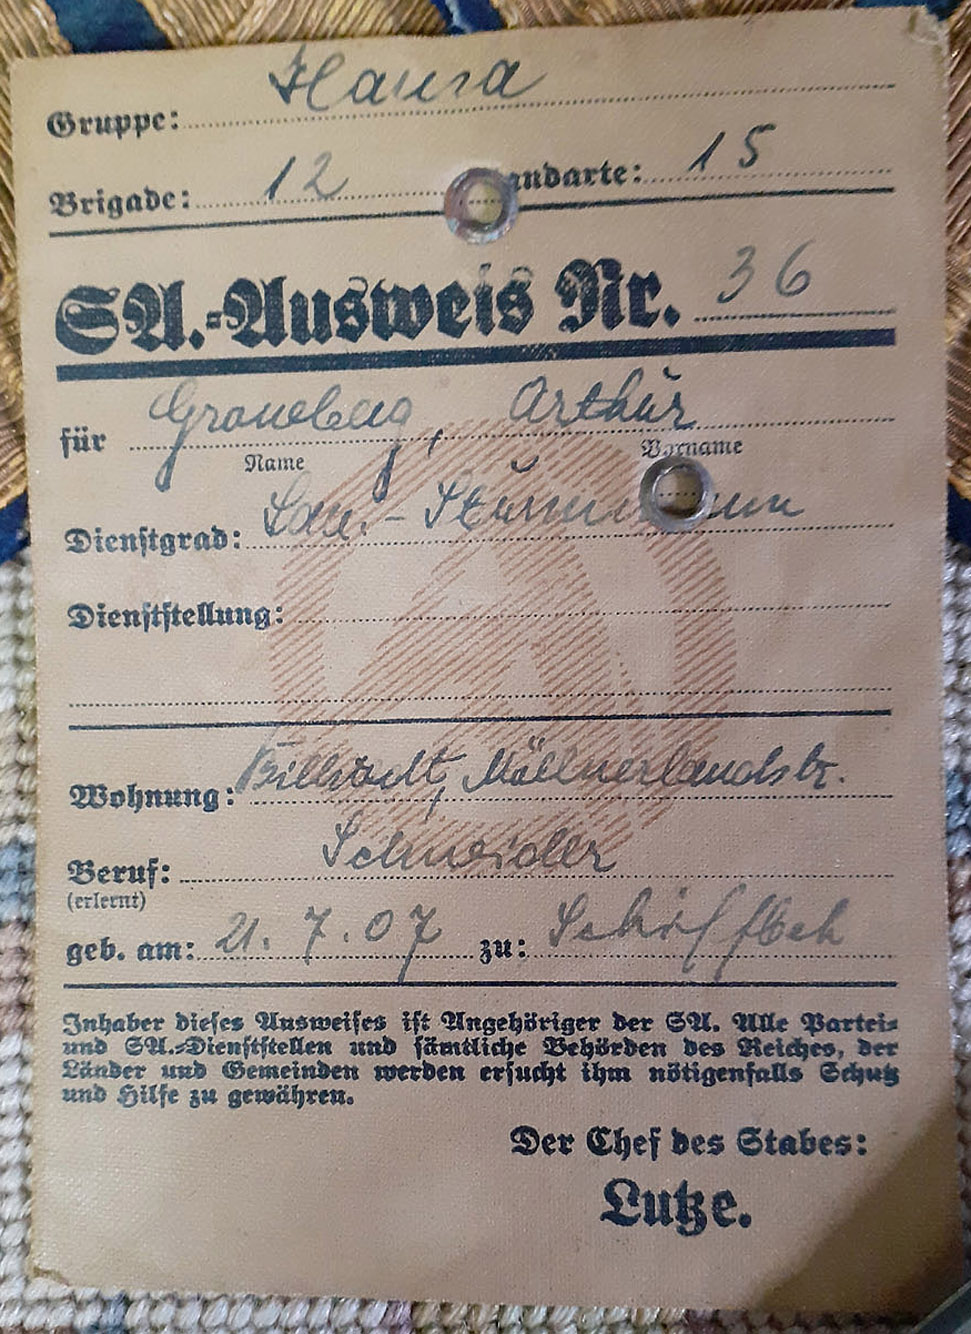 Gruppe: Hansa
Brigade: 12 andarte: 15
SA.-Ausweis Nr. 36
für Groneberg, Arthur
Name Vorname
Dienstgrad: San.-Sturmmann
Dienststellung:
Wohnung: Billstedt, Möllnerlandstr.
Beruf: Schneider
(erlernt)
geb. am: 21. 7. 07 zu: Schiffbek
Inhaber dieses Ausweises ist Angehöriger der SA. Alle Partei-
und SA.-Dienststellen und sämtliche Behörden des Reiches, der
Länder und Gemeinden werden ersucht ihm nötigenfalls Schutz
und Hilfe zu gewähren.
Der Chef des Stabes:
Lutze.